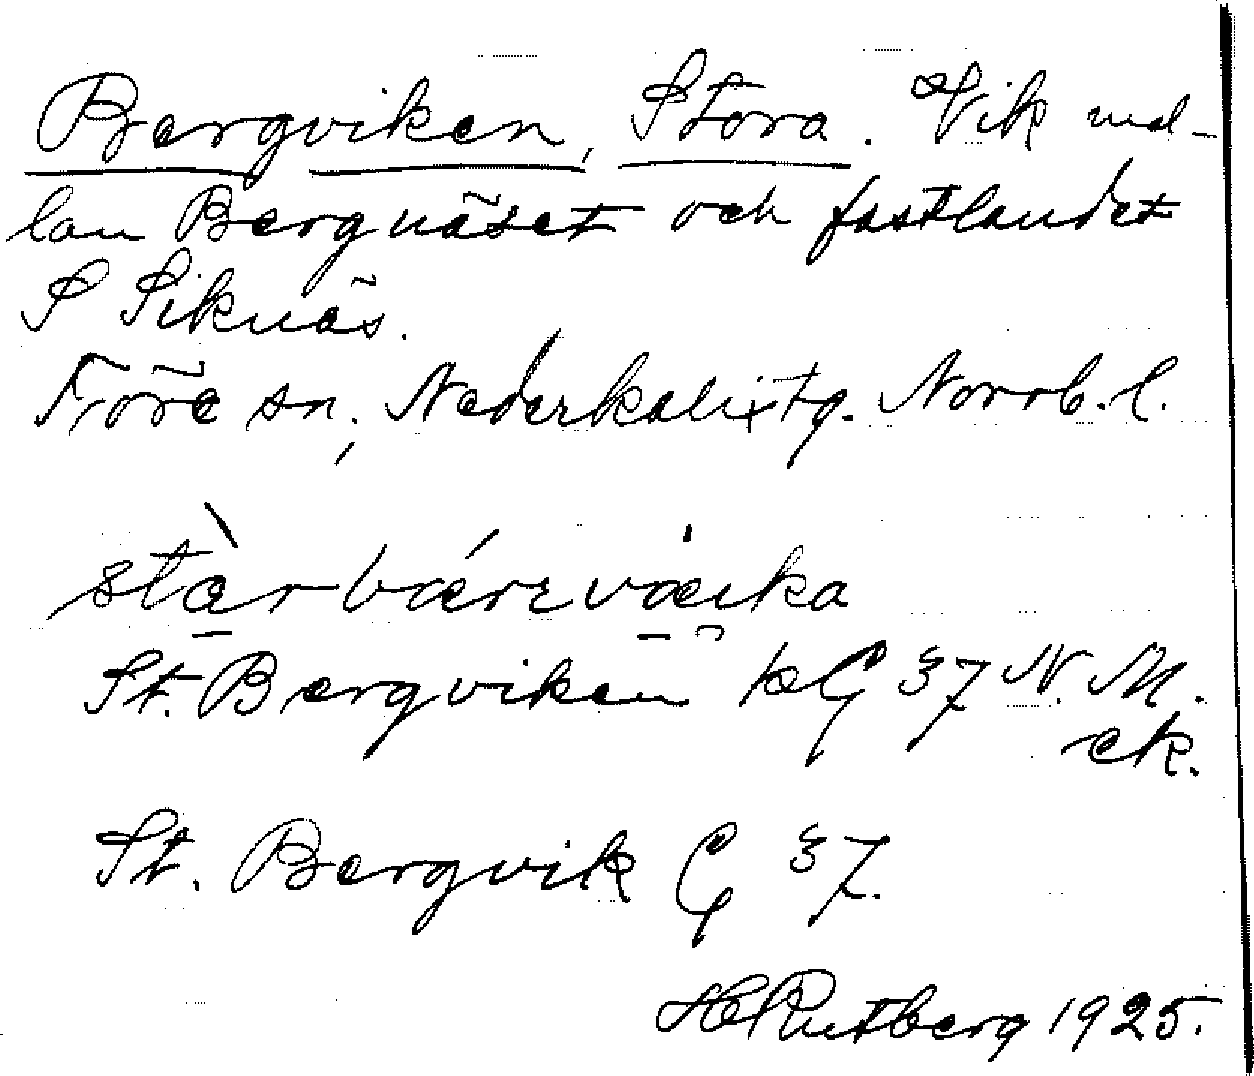 Bergviken, Stora. Vik mel-
lan Bergnäset och fastlandet
S Siknäs.
Töre sn, Nederkalix tg. Norrb. l.
stàrbárevæika
St. Bergviken kG 37 N. M.
ek.
St. Bergvik G 37.
H Rutberg 1925.